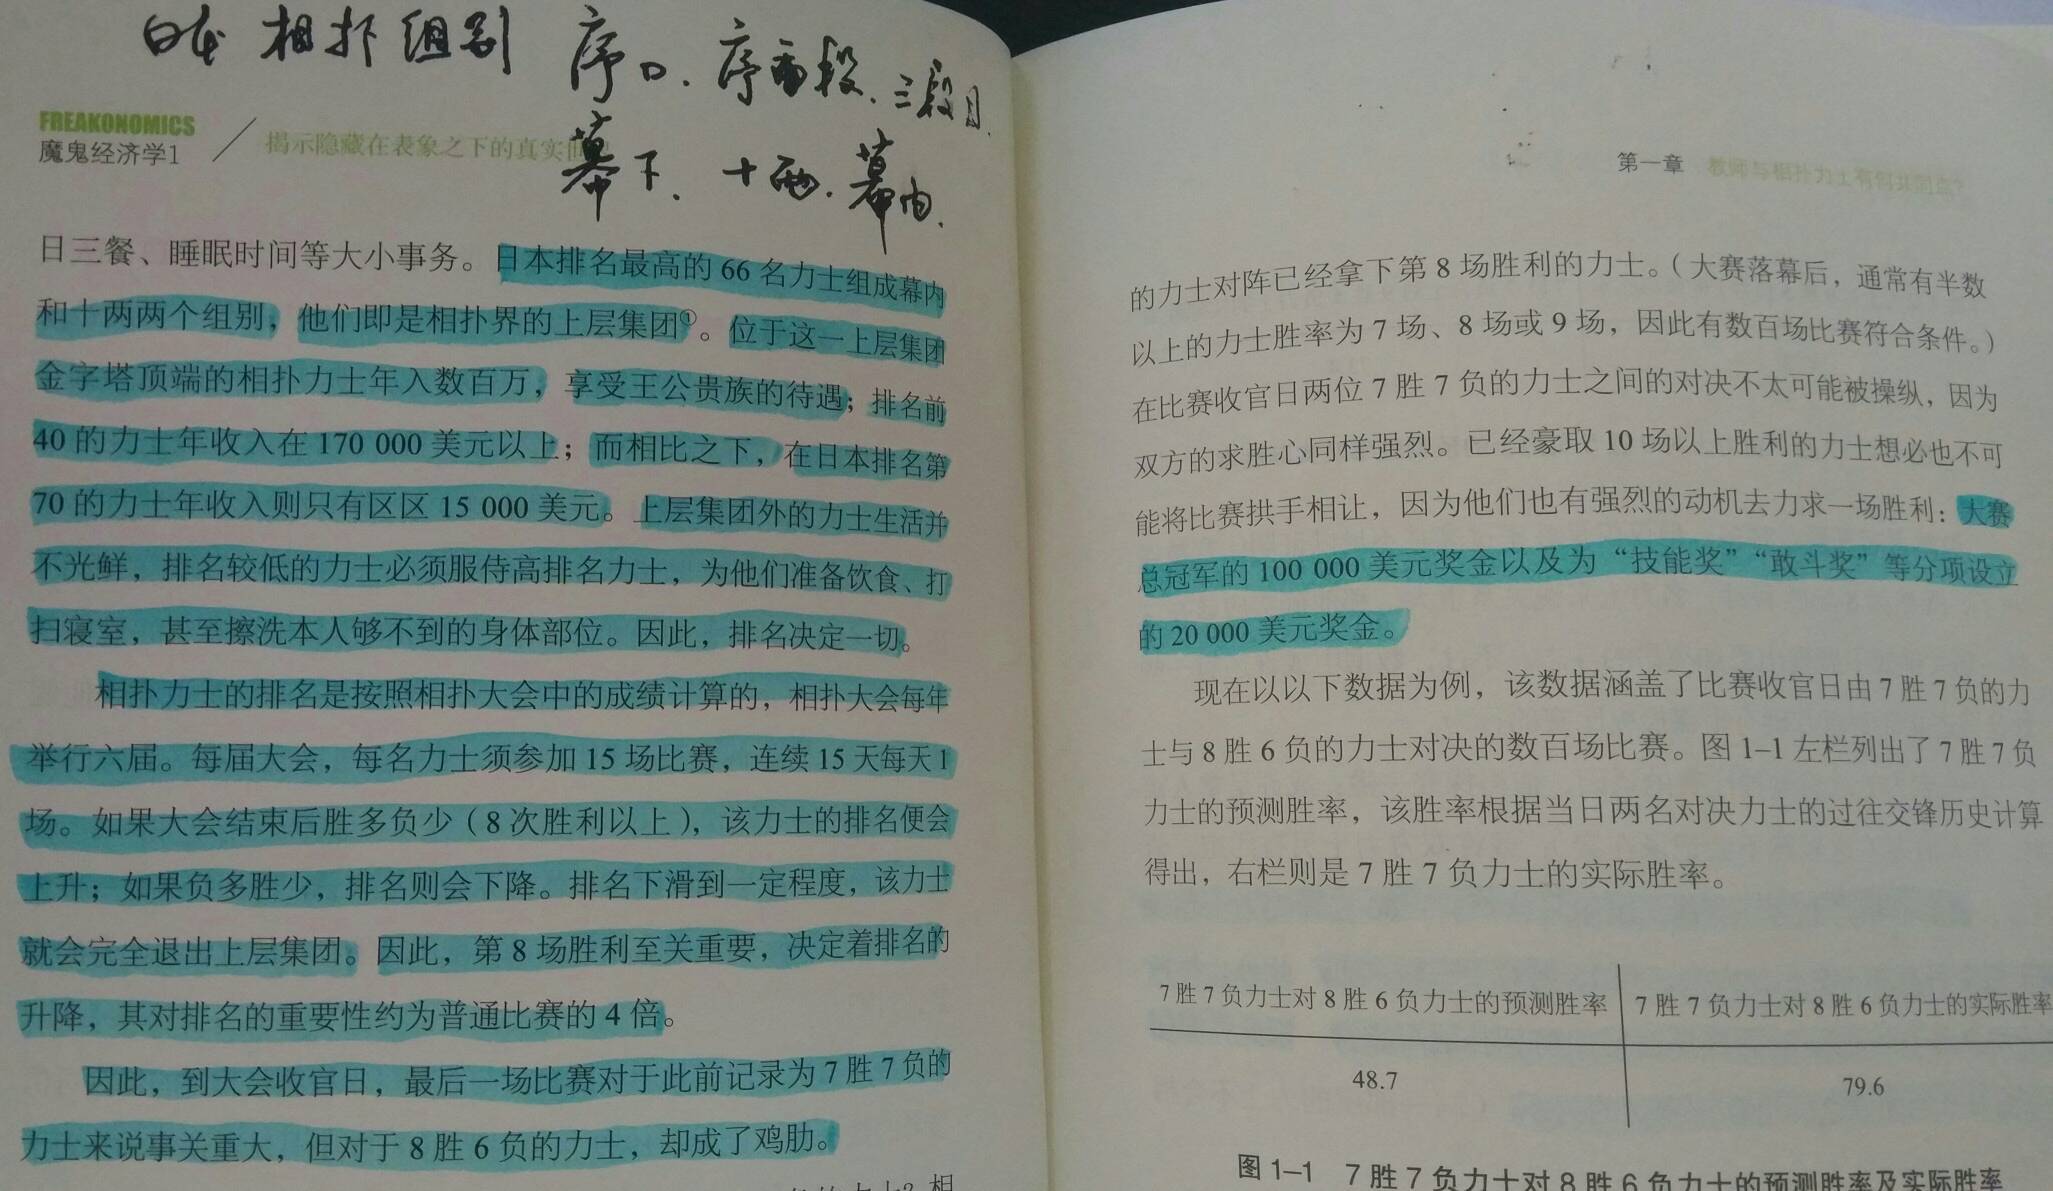 日本 相扑 组别 序口、序二段、三段目、
幕下、十两、幕内、
FREAKONOMICS
魔鬼经济学1
揭示隐藏在表象之下的真实世
日三餐、睡眠时间等大小事务。日本排名最高的 66 名力士组成幕内
和十两两个组别，他们即是相扑界的上层集团①。位于这一上层集团
金字塔顶端的相扑力士年入数百万，享受王公贵族的待遇；排名前
40 的力士年收入在 170 000 美元以上；而相比之下，在日本排名第
70 的力士年收入则只有区区 15 000 美元。上层集团外的力士生活并
不光鲜，排名较低的力士必须服侍高排名力士，为他们准备饮食、打
扫寝室，甚至擦洗本人够不到的身体部位。因此，排名决定一切。
相扑力士的排名是按照相扑大会中的成绩计算的，相扑大会每年
举行六届。每届大会，每名力士须参加 15 场比赛，连续 15 天每天 1
场。如果大会结束后胜多负少（8 次胜利以上），该力士的排名便会
上升；如果负多胜少，排名则会下降。排名下滑到一定程度，该力士
就会完全退出上层集团。因此，第 8 场胜利至关重要，决定着排名的
升降，其对排名的重要性约为普通比赛的 4 倍。
因此，到大会收官日，最后一场比赛对于此前记录为 7 胜 7 负的
力士来说事关重大，但对于 8 胜 6 负的力士，却成了鸡肋。
第一章 教师与相扑力士有何共同点？
的力士对阵已经拿下第 8 场胜利的力士。（大赛落幕后，通常有半数
以上的力士胜率为 7 场、8 场或 9 场，因此有数百场比赛符合条件。）
在比赛收官日两位 7 胜 7 负的力士之间的对决不太可能被操纵，因为
双方的求胜心同样强烈。已经豪取 10 场以上胜利的力士想必也不可
能将比赛拱手相让，因为他们也有强烈的动机去力求一场胜利：大赛
总冠军的 100 000 美元奖金以及为“技能奖”“敢斗奖”等分项设立
的 20 000 美元奖金。
现在以以下数据为例，该数据涵盖了比赛收官日由 7 胜 7 负的力
士与 8 胜 6 负的力士对决的数百场比赛。图 1–1 左栏列出了 7 胜 7 负
力士的预测胜率，该胜率根据当日两名对决力士的过往交锋历史计算
得出，右栏则是 7 胜 7 负力士的实际胜率。
7 胜 7 负力士对 8 胜 6 负力士的预测胜率 7 胜 7 负力士对 8 胜 6 负力士的实际胜率
48.7 79.6
图 1–1 7 胜 7 负力士对 8 胜 6 负力士的预测胜率及实际胜率